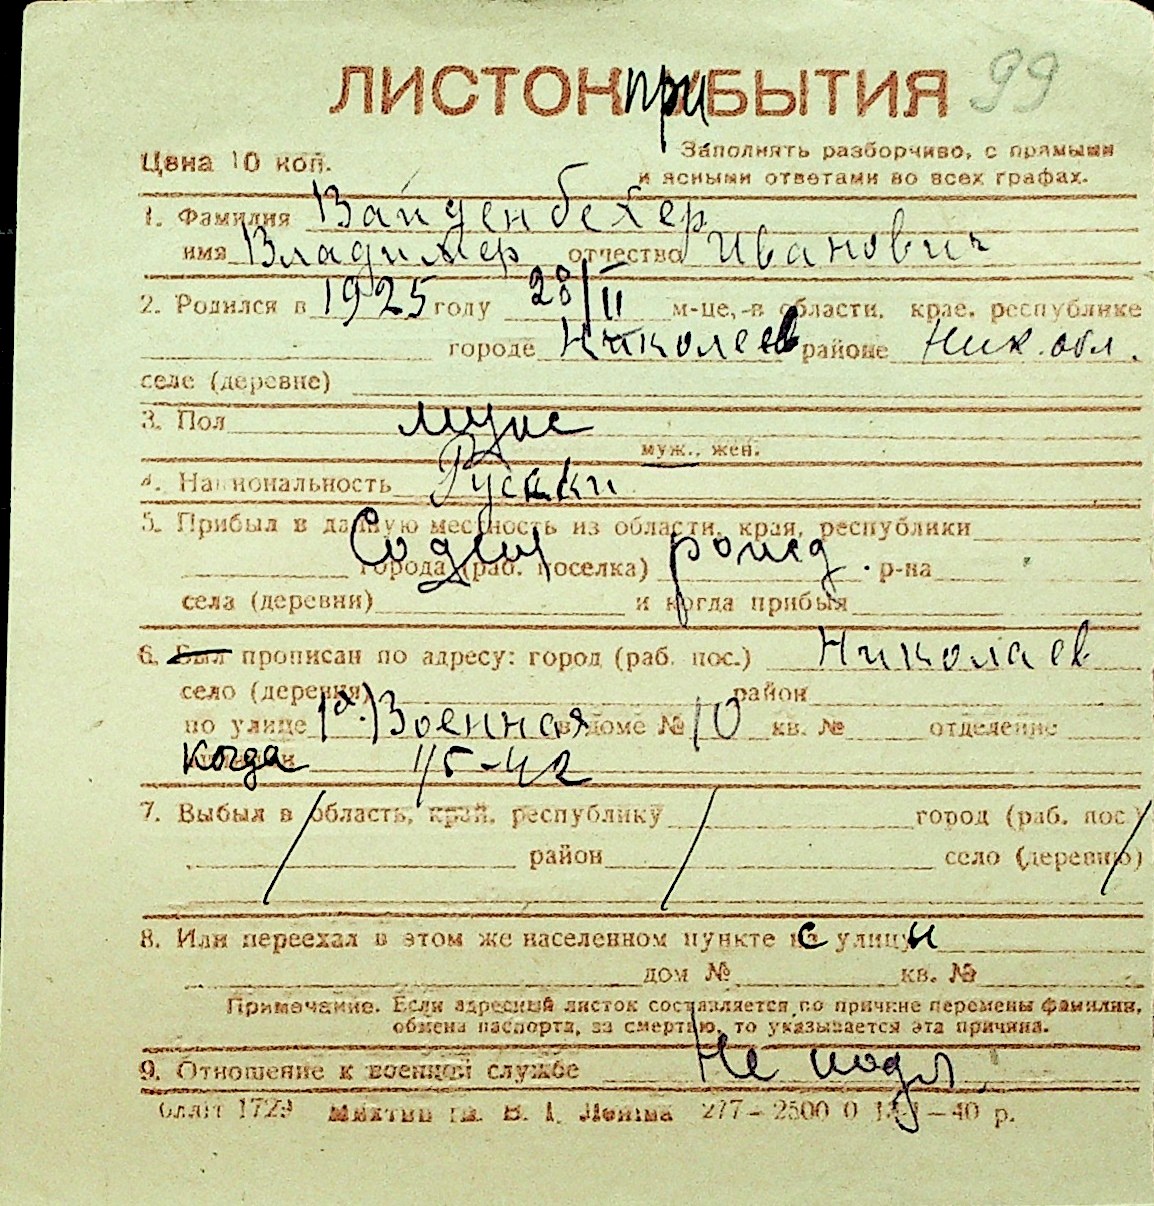 ЛИСТОК ПРИБЫТИЯ 99
Цена 10 коп.
Заполнять разборчиво, с прямыми
и ясными ответами во всех графах.
1. Фамилия Вайденбехер
имя Владимер отчество Иванович
2. Родился в 1925 году 28/II м-це, в области, крае, республике
городе Николаев районе Ник. обл.
селе (деревне)
3. Пол муж
муж., жен.
4. Национальность Рускки
5. Прибыл в данную местность из области, края, республики
города (раб. поселка) р-на
села (деревни) и когда прибыл
6. Был прописан по адресу: город (раб. пос.) Николаев
село (деревня) район
по улице 1я) Военная в доме № 10 кв. № отделение
когда 1/5-42
7. Выбыл в область, край, республику город (раб. пос.)
район село (деревню)
8. Или переехал в этом же населенном пункте с улицы
дом № кв. №
Примечание. Если адресный листок составляется по причине перемены фамилии,
обмена паспорта, за смертью, то указывается эта причина.
9. Отношение к военной службе Не подл.
1729 ім. В. І. Леніна 277–2500 0 –40 р.